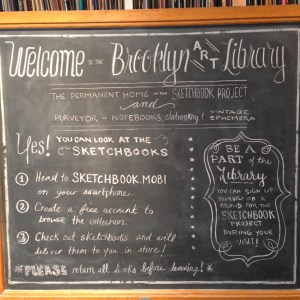 Welcome TO THE Brooklyn ART Library
THE PERMANENT HOME OF THE SKETCHBOOK PROJECT
and
PURVEYOR OF NOTEBOOKS, stationery & VINTAGE EPHEMERA
Yes! YOU CAN LOOK AT THE
SKETCHBOOKS
1 Head to SKETCHBOOK.MOBI
on your smartphone.
2 Create a free account to
browse the collection.
3 Check out sketchbooks and we'll
deliver them to you in store!
PLEASE return all books before leaving!
BE A
PART of the
Library
YOU CAN SIGN UP
YOURSELF OR A
FRIEND FOR THE
SKETCHBOOK
PROJECT
DURING YOUR
VISIT!